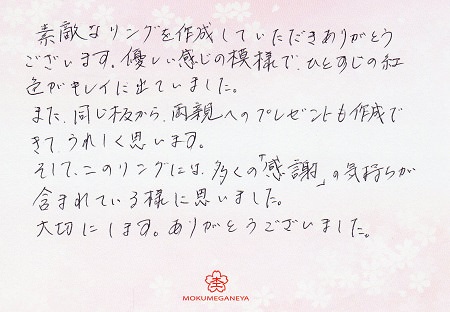 素敵なリングを作成していただきありがとう
ございます。優しい感じの模様で、ひとすじの紅
色がキレイに出ていました。
また、同じ板から、両親へのプレゼントも作成で
きて、うれしく思います。
そして、このリングには、多くの「感謝」の気持ちが
含まれている様に思いました。
大切にします。ありがとうございました。
MOKUMEGANEYA